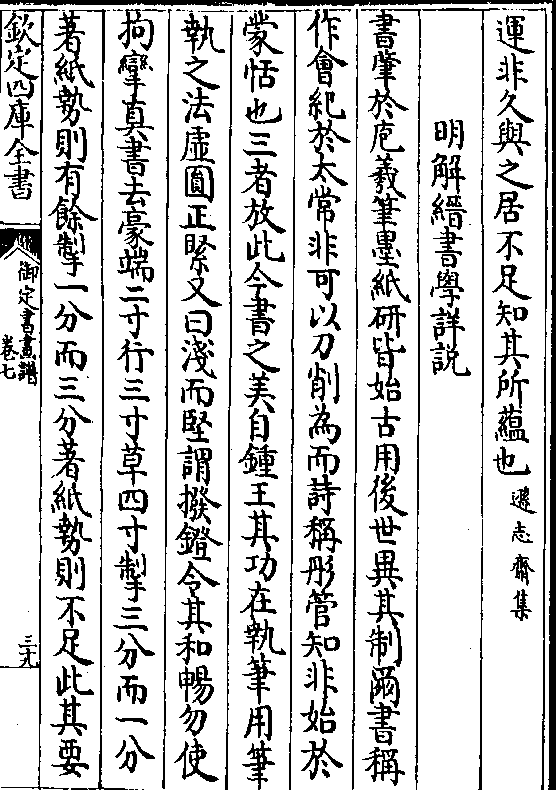 運非久與之居不足知其所蘊也遜志齋集
明解縉書學詳説
書肇於庖羲筆墨紙研皆始古用後世異其制爾書稱
作會紀於太常非可以刀削為而詩稱彤管知非始於
蒙恬也三者放此今書之美自鍾王其功在執筆用筆
執之法虛圓正緊又曰淺而堅謂撥鐙令其和暢勿使
拘攣真書去毫端二寸行三寸草四寸掣三分而一分
著紙勢則有餘掣一分而三分著紙勢則不足此其要
欽定四庫全書
御定書畫譜
卷七
三九